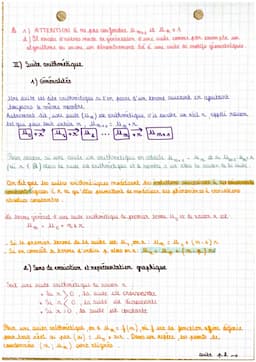 1) ATTENTION à ne pas confondre Un+1 et Un + 1
2) Il existe d'autres mode de génération d'une suite comme par exemple un
algorithme ou encore un dénombrement lié à une suite de motifs géométriques.
II) Suite arithmétique
1) Généralités
Une suite est dite arithmétique si l'on passe d'un terme suivant en ajoutant
toujours le même nombre.
Autrement dit, une suite (Un) est arithmétique s'il existe un réel r appelé raison
tel que pour tout entier n, Un+1 = Un + r
U0 +r U1 +r U2 ... Un +r Un+1
Pour savoir si une suite est arithmétique on calcule Un+1 - Un
est arithmétique et le nombre r est alors la raison de la suite
On dit que les suites arithmétiques modélisent des évolutions
absolues constantes.
Le terme général d'une suite arithmétique de premier terme U0 et de raison r est
Un = U0 + n x r
- Si le premier terme de la suite est U1 on a : Un = U1 + (n-1) x r
- Si on connaît le terme d'indice p alors on a : Un = Up + (n-p) x r
2) Sens de variation et représentation graphique
Soit une suite arithmétique de raison r
• Si r > 0, la suite est croissante
• Si r < 0, la suite est décroissante
• Si r = 0, la suite est constante
Pour une suite arithmétique, on a Un = f(n), où f est la fonction affine définie
pour tout réel x par f(x) = U0 + rx. Dans un repère, les points de
coordonnées (n ; Un) sont alignés
suite p.2 →